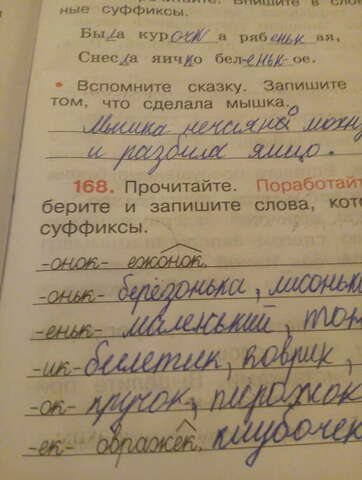 Впишите в сло
ные суффиксы.
Была курочк а рябеньк ая,
Снесла яичко бел-еньк-ое.
• Вспомните сказку. Запишите
том, что сделала мышка.
Мышка
и разбила яицо.
168. Прочитайте. Поработай
берите и запишите слова, кот
суффиксы.
-онок- ежонок,
-оньк- берёзонька, лисоньк
-еньк- маленький, тон
-ик- билетик, коврик,
-ок- кружок, пирожок
-ек- овражек, клубочек